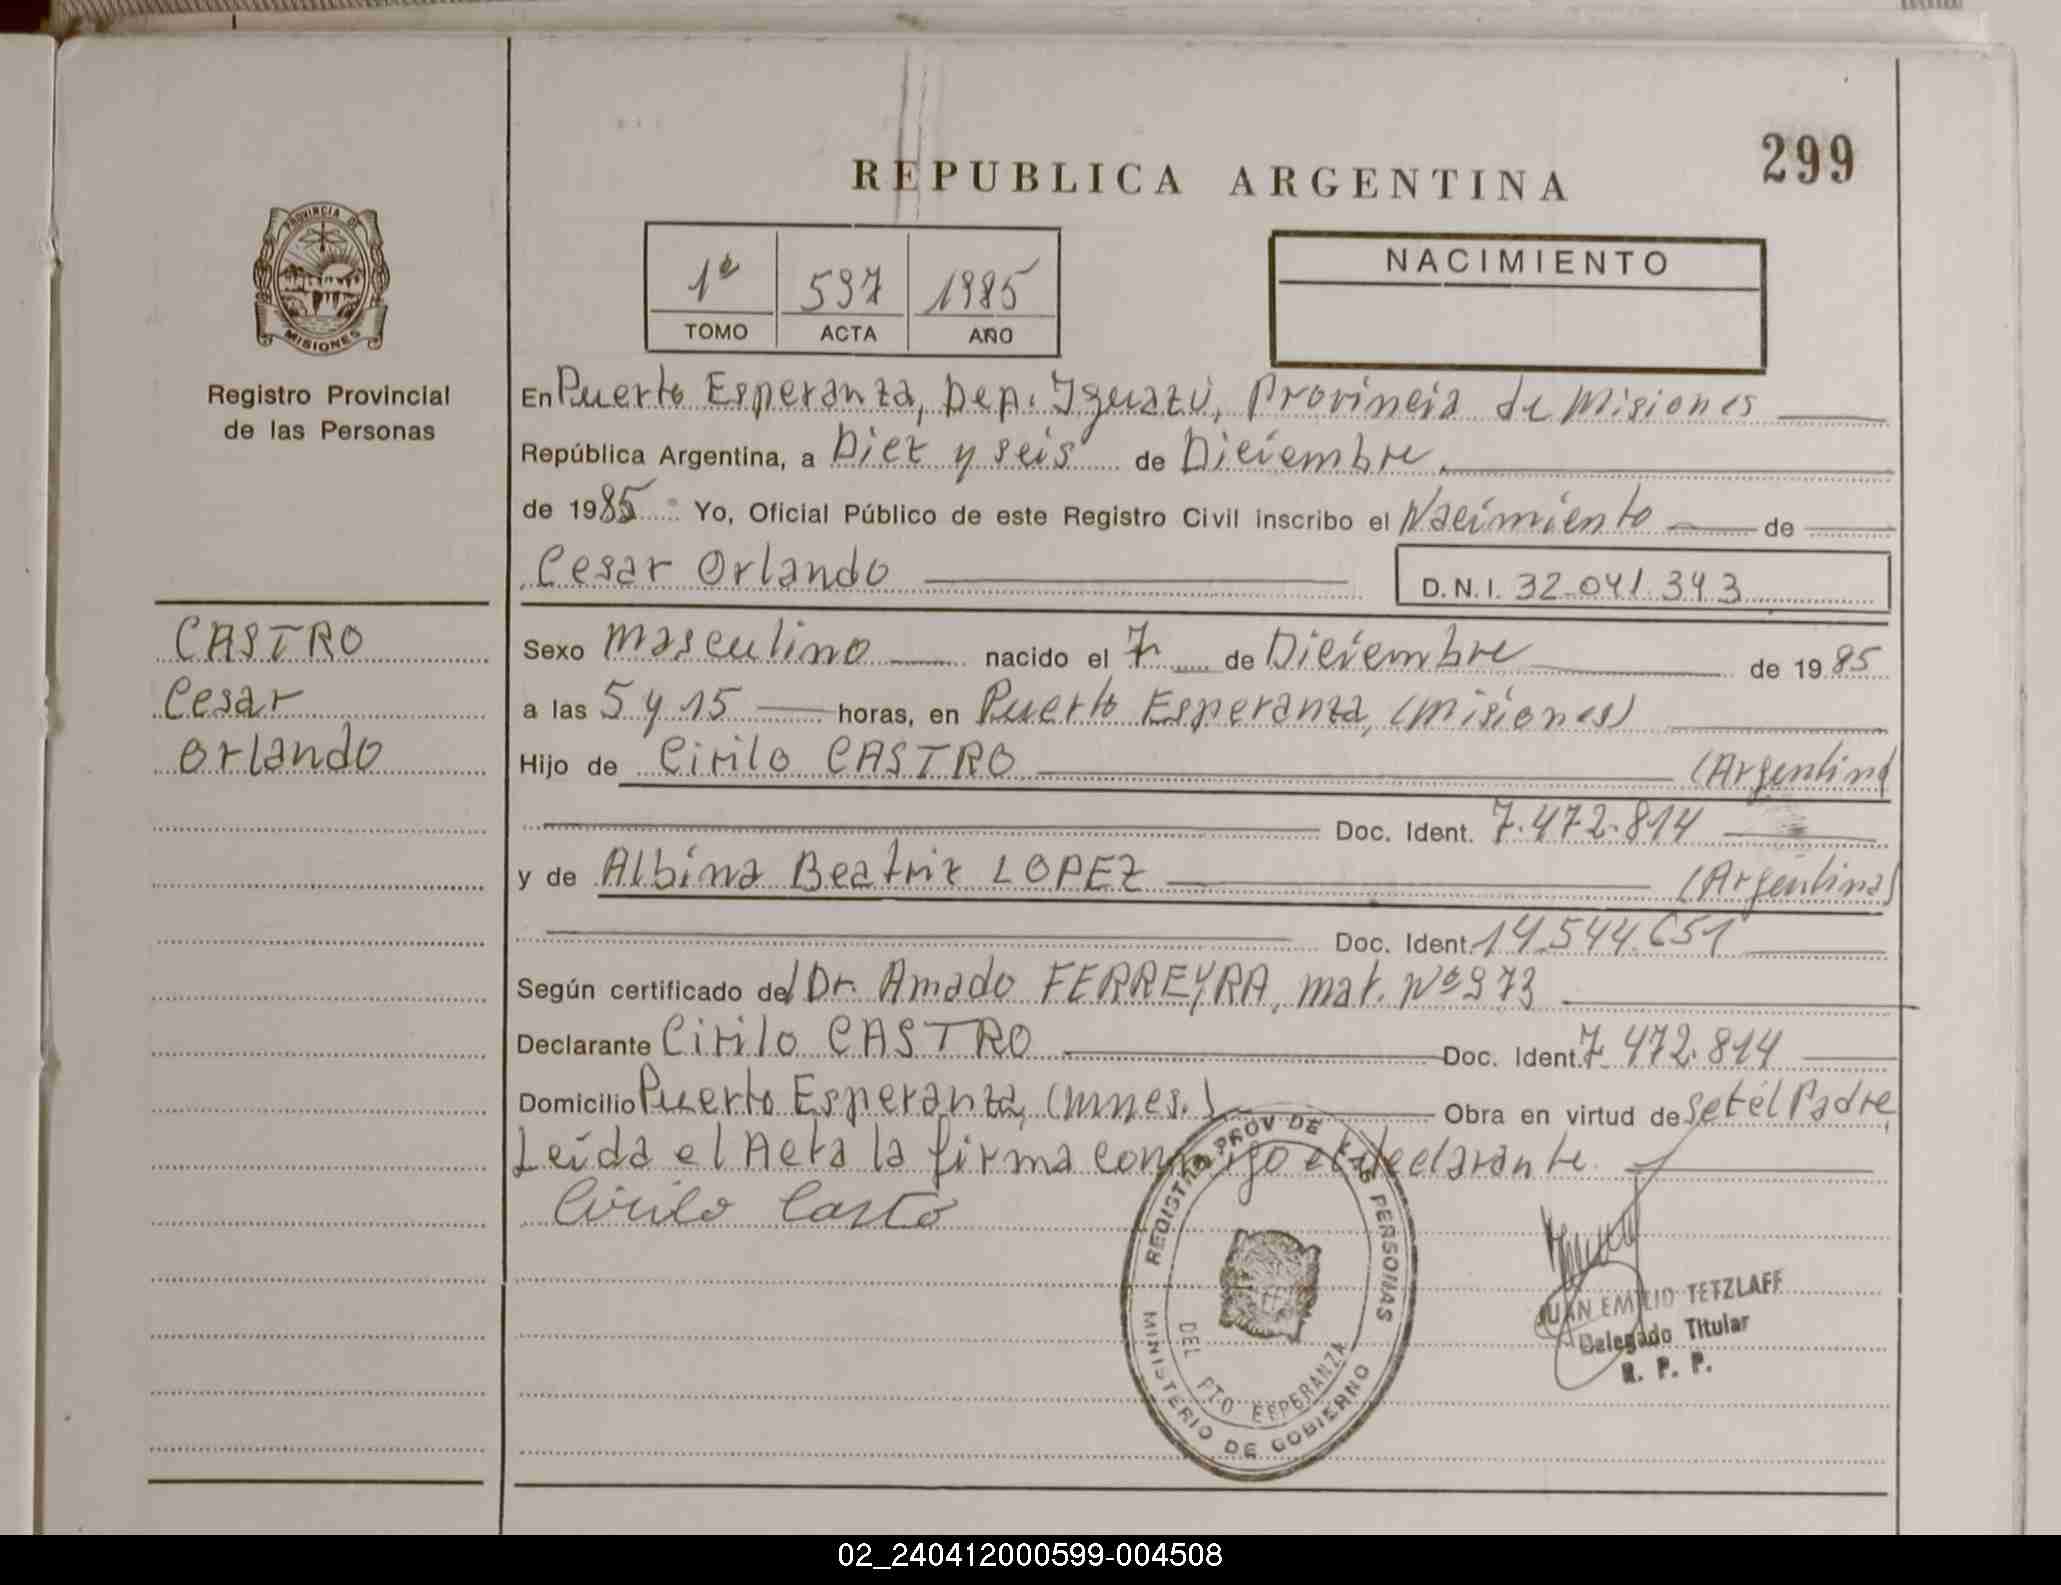 REPUBLICA ARGENTINA
299
PROVINCIA DE
MISIONES
Registro Provincial
de las Personas
1º 597 1985
TOMO ACTA AÑO
NACIMIENTO
En Puerto Esperanza, Dep. Iguazú, Provincia de Misiones
República Argentina, a Diez y seis de Diciembre.
de 1985 Yo, Oficial Público de este Registro Civil inscribo el Nacimiento de
Cesar Orlando
D.N.I. 32.041.343
CASTRO
Cesar
Orlando
Sexo Masculino nacido el 7 de Diciembre de 1985
a las 5 y 15 horas, en Puerto Esperanza, (Misiones)
Hijo de Cirilo CASTRO (Argentino
Doc. Ident. 7.472.814
y de Albina Beatriz LOPEZ (Argentina)
Doc. Ident. 14.544.651
Según certificado del Dr. Amado FERREYRA, mat. Nº 973
Declarante Cirilo CASTRO Doc. Ident. 7.472.814
Domicilio Puerto Esperanza, (mnes.) Obra en virtud de Ser él Padre,
Leída el Acta la firma conmigo el declarante.
Cirilo Castro
REGISTRO PROV DE LAS PERSONAS
MINISTERIO DE GOBIERNO
DEL PTO ESPERANZA
JUAN EMILIO TETZLAFF
Delegado Titular
R. P. P.
02_240412000599-004508